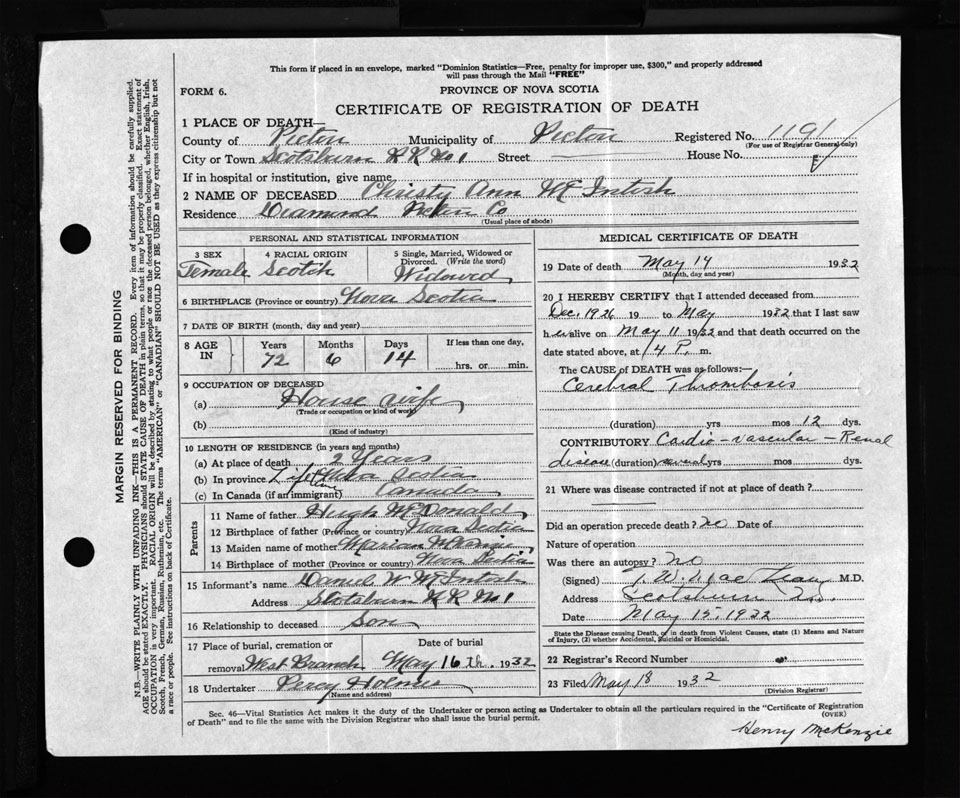 This form if placed in an envelope, marked "Dominion Statistics—Free, penalty for improper use, $300," and properly addressed
will pass through the Mail "FREE"
FORM 6.
PROVINCE OF NOVA SCOTIA
CERTIFICATE OF REGISTRATION OF DEATH
1 PLACE OF DEATH—
County of Pictou Municipality of Pictou Registered No. 1191
(For use of Registrar General only)
City or Town Scotsburn R R No 1 Street House No.
If in hospital or institution, give name
2 NAME OF DECEASED Christy Ann McIntosh
Residence Diamond Pictou Co
(Usual place of abode)
PERSONAL AND STATISTICAL INFORMATION
3 SEX 4 RACIAL ORIGIN 5 Single, Married, Widowed or
Divorced. (Write the word)
Female Scotch Widowed
6 BIRTHPLACE (Province or country) Nova Scotia
7 DATE OF BIRTH (month, day and year)
8 AGE IN Years Months Days If less than one day,
72 6 14 hrs. or min.
9 OCCUPATION OF DECEASED
(a) House wife
(Trade or occupation or kind of work)
(b)
(Kind of industry)
10 LENGTH OF RESIDENCE (in years and months)
(a) At place of death 2 Years
(b) In province Life Nova Scotia
(c) In Canada (if an immigrant) Canada
Parents
11 Name of father Hugh McDonald
12 Birthplace of father (Province or country) Nova Scotia
13 Maiden name of mother Marian
14 Birthplace of mother (Province or country) Nova Scotia
15 Informant's name Daniel W McIntosh
Address Scotsburn R R No 1
16 Relationship to deceased Son
17 Place of burial, cremation or Date of burial
removal West Branch May 16th, 1932
18 Undertaker Percy Holmes
(Name and address)
MEDICAL CERTIFICATE OF DEATH
19 Date of death May 14 1932
(Month, day and year)
20 I HEREBY CERTIFY that I attended deceased from
Dec. 1926 19 to May 1932 that I last saw
her alive on May 11 1932 and that death occurred on the
date stated above, at 4 P. m.
The CAUSE of DEATH was as follows:—
Cerebral Thrombosis
(duration) yrs mos 12 dys.
CONTRIBUTORY Cardio-vascular-Renal
disease (duration) several yrs mos dys.
21 Where was disease contracted if not at place of death?
Did an operation precede death? no Date of
Nature of operation
Was there an autopsy? no
(Signed) M.D.
Address Scotsburn N.S.
Date May 15, 1932
State the Disease causing Death, or in death from Violent Causes, state (1) Means and Nature
of Injury, (2) whether Accidental, Suicidal or Homicidal.
22 Registrar's Record Number
23 Filed May 18 1932
(Division Registrar)
Sec. 46—Vital Statistics Act makes it the duty of the Undertaker or person acting as Undertaker to obtain all the particulars required in the "Certificate of Registration
of Death" and to file the same with the Division Registrar who shall issue the burial permit.
(OVER)
Henry McKenzie
MARGIN RESERVED FOR BINDING
N.B.—WRITE PLAINLY WITH UNFADING INK—THIS IS A PERMANENT RECORD. Every item of information should be carefully supplied.
AGE should be stated EXACTLY. PHYSICIANS should STATE CAUSE OF DEATH in plain terms, so that it may be properly classified. Exact statement of
OCCUPATION is very important. RACIAL ORIGIN will be described by stating to what people or race the deceased person belonged, whether English, Irish,
Scotch, French, German, Russian, Ruthenian, etc. The terms "AMERICAN" or "CANADIAN" SHOULD NOT BE USED as they express citizenship but not
a race or people. See instructions on back of Certificate.